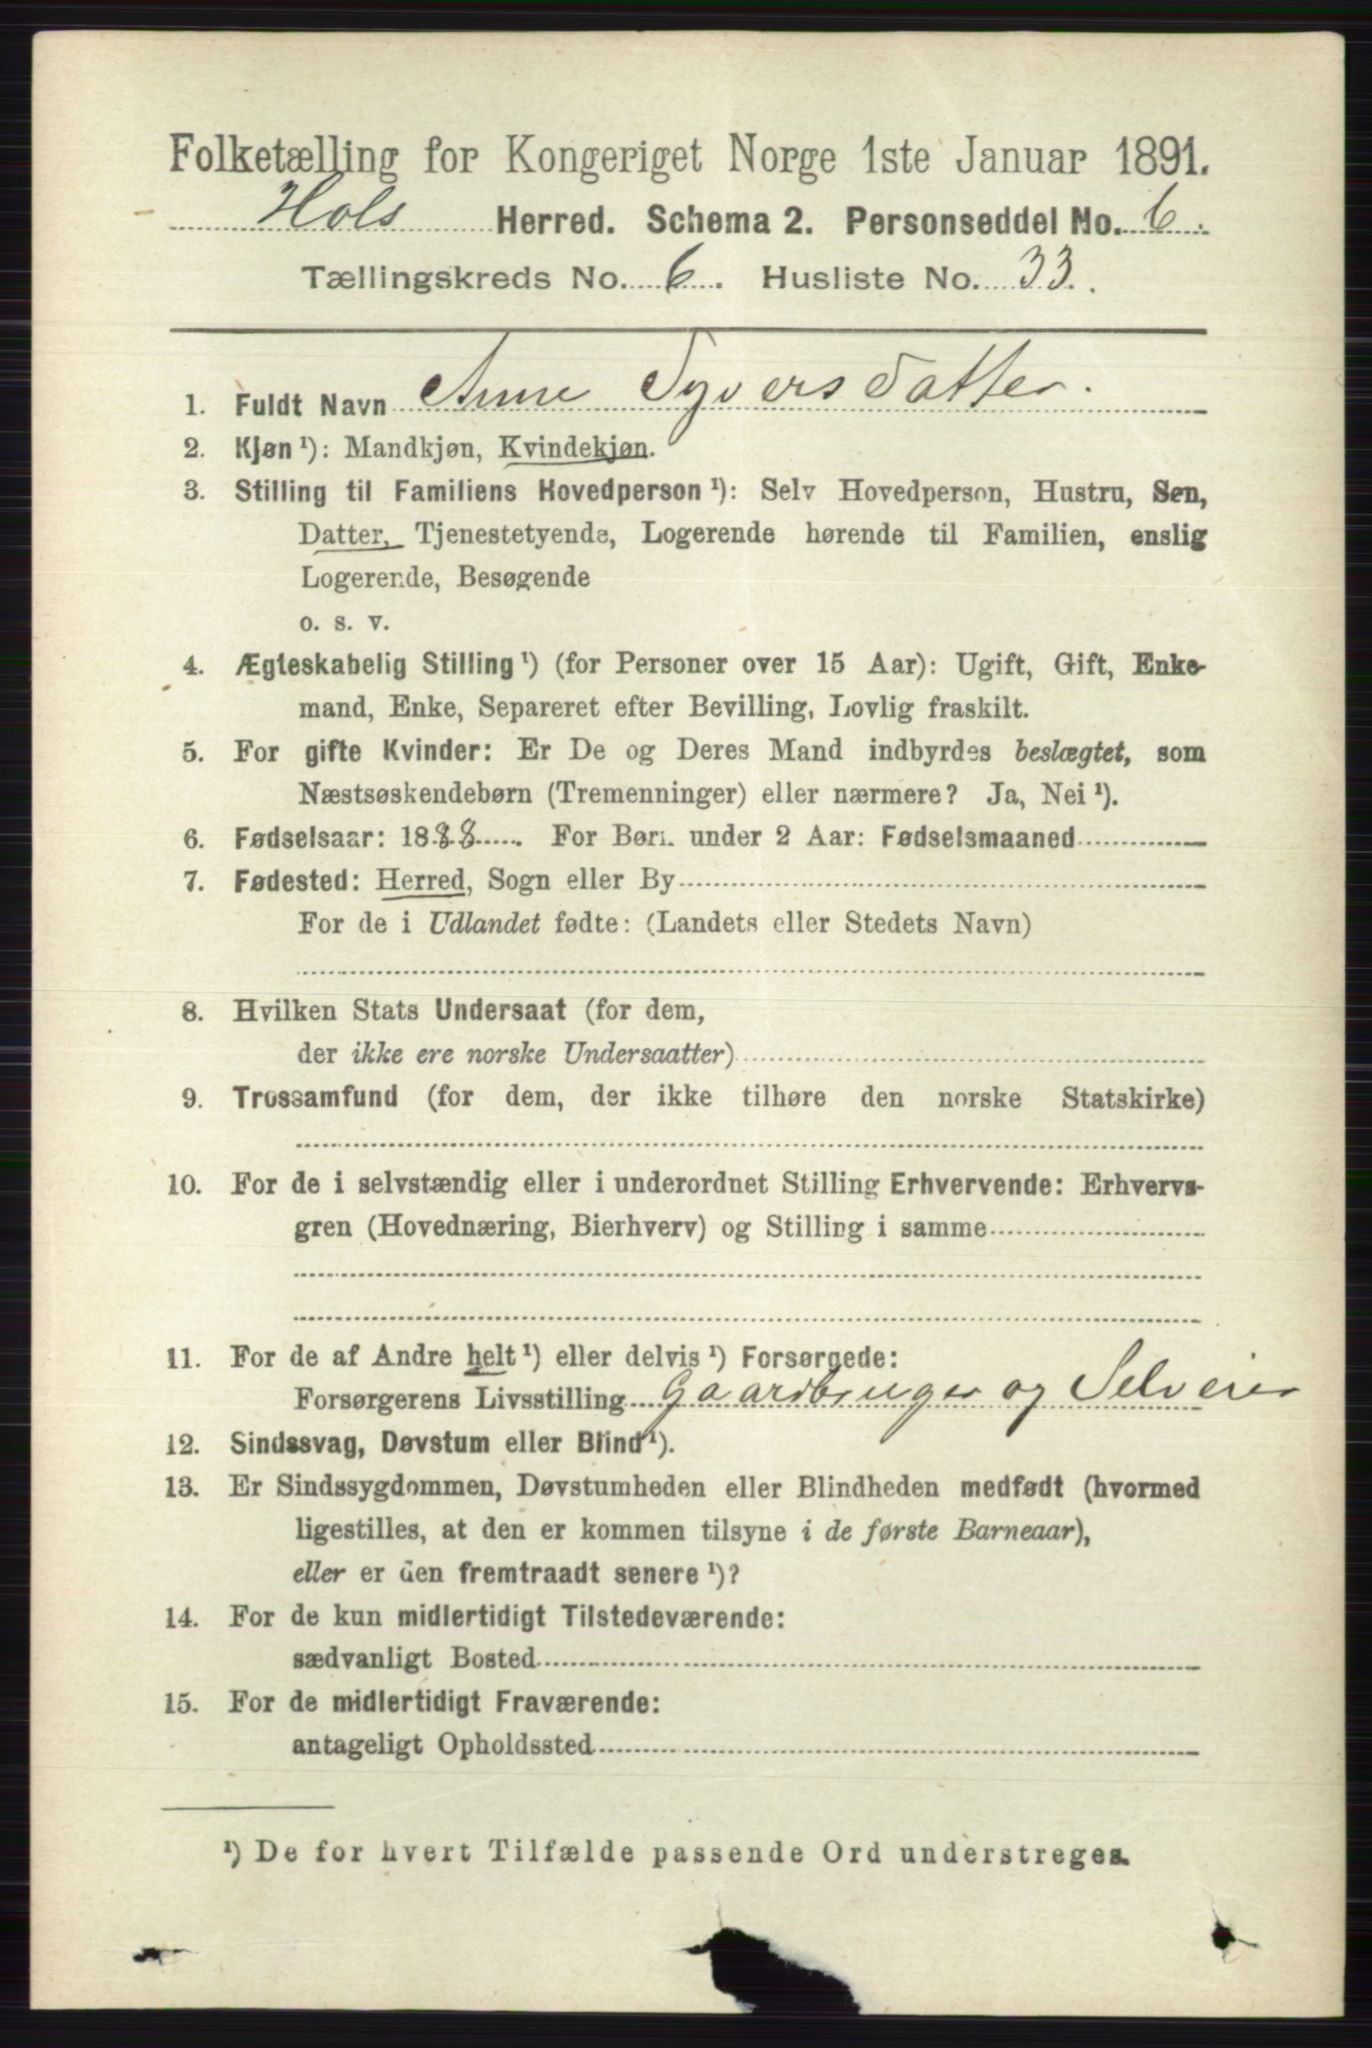 Folketælling for Kongeriget Norge 1ste Januar 1891.
Hols Herred. Schema 2. Personseddel No. 6.
Tællingskreds No. 6. Husliste No. 33.
1. Fuldt Navn Anne Syversdatter.
2. Kjøn ¹): Mandkjøn, Kvindekjøn.
3. Stilling til Familiens Hovedperson ¹): Selv Hovedperson, Hustru, Søn,
Datter, Tjenestetyende, Logerende hørende til Familien, enslig
Logerende, Besøgende
o. s. v.
4. Ægteskabelig Stilling ¹) (for Personer over 15 Aar): Ugift, Gift, Enke-
mand, Enke, Separeret efter Bevilling, Lovlig fraskilt.
5. For gifte Kvinder: Er De og Deres Mand indbyrdes beslægtet, som
Næstsøskendebørn (Tremenninger) eller nærmere? Ja, Nei ¹).
6. Fødselsaar: 1888. For Børn under 2 Aar: Fødselsmaaned
7. Fødested: Herred, Sogn eller By
For de i Udlandet fødte: (Landets eller Stedets Navn)
8. Hvilken Stats Undersaat (for dem,
der ikke ere norske Undersaatter)
9. Trossamfund (for dem, der ikke tilhøre den norske Statskirke)
10. For de i selvstændig eller i underordnet Stilling Erhvervende: Erhvervs-
gren (Hovednæring, Bierhverv) og Stilling i samme
11. For de af Andre helt ¹) eller delvis ¹) Forsørgede:
Forsørgerens Livsstilling Gaardbruger og Selveier
12. Sindssvag, Døvstum eller Blind ¹).
13. Er Sindssygdommen, Døvstumheden eller Blindheden medfødt (hvormed
ligestilles, at den er kommen tilsyne i de første Barneaar),
eller er den fremtraadt senere ¹)?
14. For de kun midlertidigt Tilstedeværende:
sædvanligt Bosted
15. For de midlertidigt Fraværende:
antageligt Opholdssted
¹) De for hvert Tilfælde passende Ord understreges.